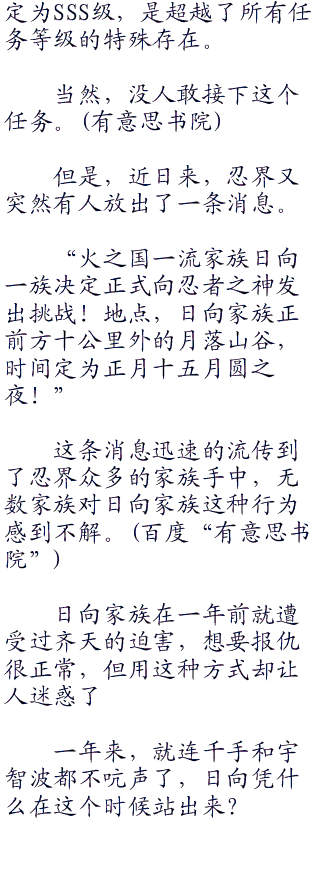 定为SSS级，是超越了所有任
务等级的特殊存在。
当然，没人敢接下这个
任务。(有意思书院)
但是，近日来，忍界又
突然有人放出了一条消息。
“火之国一流家族日向
一族决定正式向忍者之神发
出挑战！地点，日向家族正
前方十公里外的月落山谷，
时间定为正月十五月圆之
夜！”
这条消息迅速的流传到
了忍界众多的家族手中，无
数家族对日向家族这种行为
感到不解。(百度“有意思书
院”)
日向家族在一年前就遭
受过齐天的迫害，想要报仇
很正常，但用这种方式却让
人迷惑了
一年来，就连千手和宇
智波都不吭声了，日向凭什
么在这个时候站出来？